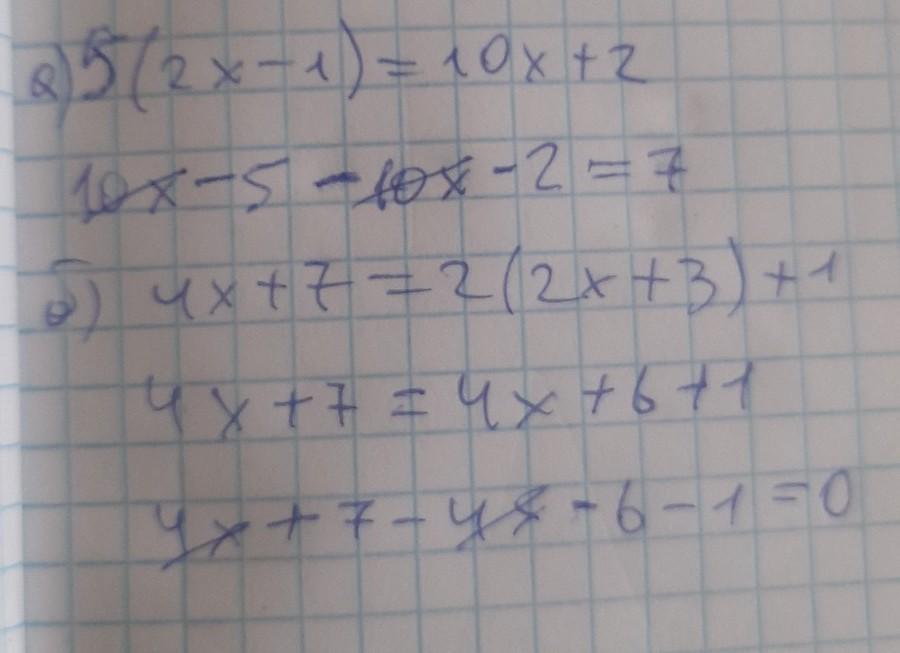 а) 5(2x-1)=10x+2
10x-5-10x-2=7
б) 4x+7=2(2x+3)+1
4x+7=4x+6+1
4x+7-4x-6-1=0